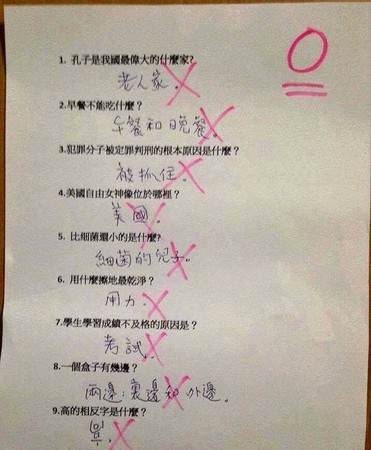 0
1. 孔子是我國最偉大的什麼家?
老人家。
2.早餐不能吃什麼？
午餐和晚餐。
3.犯罪分子被定罪判刑的根本原因是什麼？
被抓住。
4.美國自由女神像位於哪裡？
美國。
5. 比細菌還小的是什麼?
細菌的兒子。
6. 用什麼擦地最乾淨？
用力.
7.學生學習成績不及格的原因是？
考試.
8.一個盒子有幾邊？
兩邊：裏邊和外邊。
9.高的相反字是什麼？